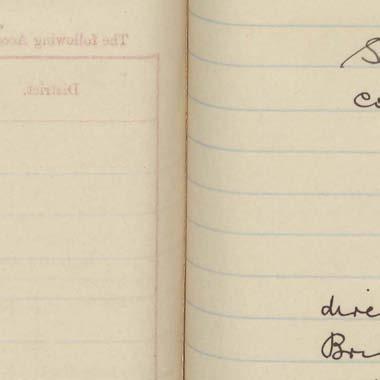 The following Acco
District.
S
co
dire
Bri